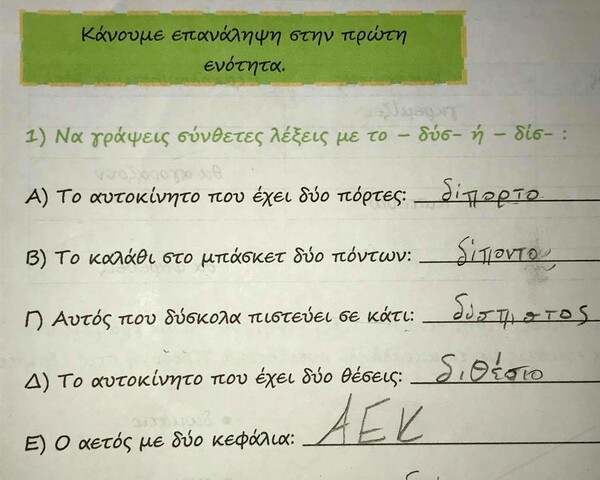 Κάνουμε επανάληψη στην πρώτη
ενότητα.
1) Να γράψεις σύνθετες λέξεις με το – δύσ- ή – δίσ- :
Α) Το αυτοκίνητο που έχει δύο πόρτες: δίπορτο
Β) Το καλάθι στο μπάσκετ δύο πόντων: δίποντο
Γ) Αυτός που δύσκολα πιστεύει σε κάτι: δύσπιστος
Δ) Το αυτοκίνητο που έχει δύο θέσεις: διθέσιο
Ε) Ο αετός με δύο κεφάλια: ΑΕΚ